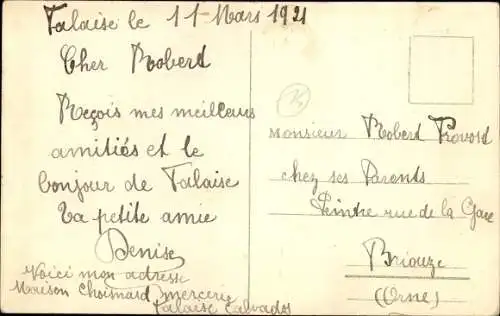 Falaise le 11 Mars 1921
Cher Robert
Reçois mes meilleurs
amitiés et le
bonjour de Falaise
Ta petite amie
Denise
Voici mon adresse
Maison Choismard mercerie
Falaise Calvados
Monsieur Robert Provost
chez ses Parents
Peintre rue de la Gare
Briouze
(Orne)